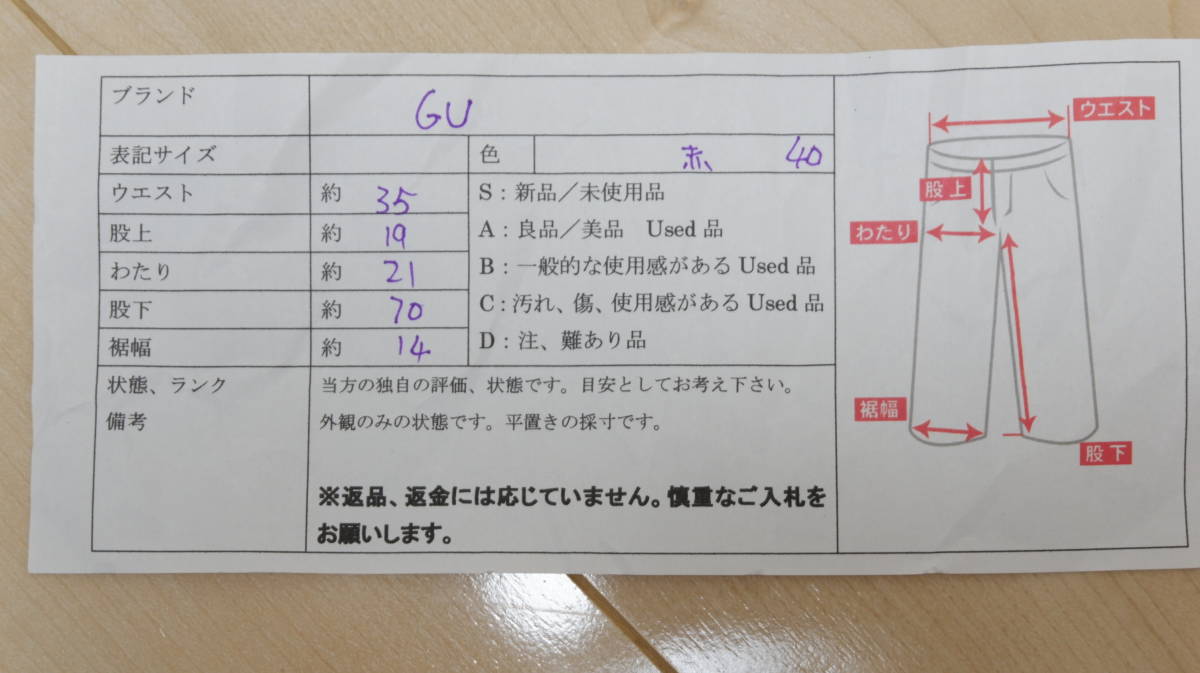 ブランド GU
表記サイズ 色 赤、 40
ウエスト 約 35 S：新品／未使用品
股上 約 19 A：良品／美品 Used 品
わたり 約 21 B：一般的な使用感がある Used 品
股下 約 70 C：汚れ、傷、使用感がある Used 品
裾幅 約 14 D：注、難あり品
状態、ランク 当方の独自の評価、状態です。目安としてお考え下さい。
備考 外観のみの状態です。平置きの採寸です。
※返品、返金には応じていません。慎重なご入札を
お願いします。
ウエスト
股上
わたり
裾幅
股下